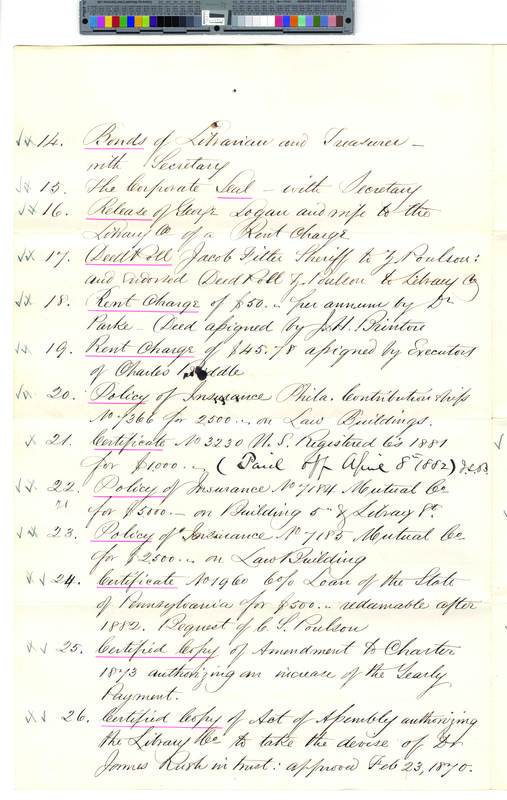 14. Bonds of Librarian and Treasurer –
with Secretary
15. The Corporate Seal – with Secretary
16. Release of George Logan and wife to the
Library Co of a Rent Charge
17. Deed Poll Jacob Fitler Sheriff to Z Poulson:
and endorsed Deed Poll Z Poulson to Library Co
18. Rent Charge of $50.. per annum by Dr
Parke – Deed assigned by J. H. Brinton
19. Rent Charge of $45.78 assigned by Executors
of Charles Biddle
20. Policy of Insurance Phila. Contributionships
No 7366 for 2500.. on Law Buildings.
21. Certificate No 3230 U. S. Registered 6's 1881
for $1000... (Paid off April 8th 1882)
22. Policy of Insurance No 7184 Mutual Co
for $5000.– on Building 5th & Library St.
23. Policy of Insurance No 7185 Mutual Co
for $2500.– on Law Building
24. Certificate No 1960 6% Loan of the State
of Pennsylvania for $500.. redamable after
1882. Bequest of C. S. Poulson
25. Certified Copy of Amendment to Charter
1873 authorizing an increase of the Yearly
Payment.
26. Certified Copy of Act of Assembly authorizing
the Library Co to take the devise of Dr
James Rush in trust: approved Feb 23, 1870.